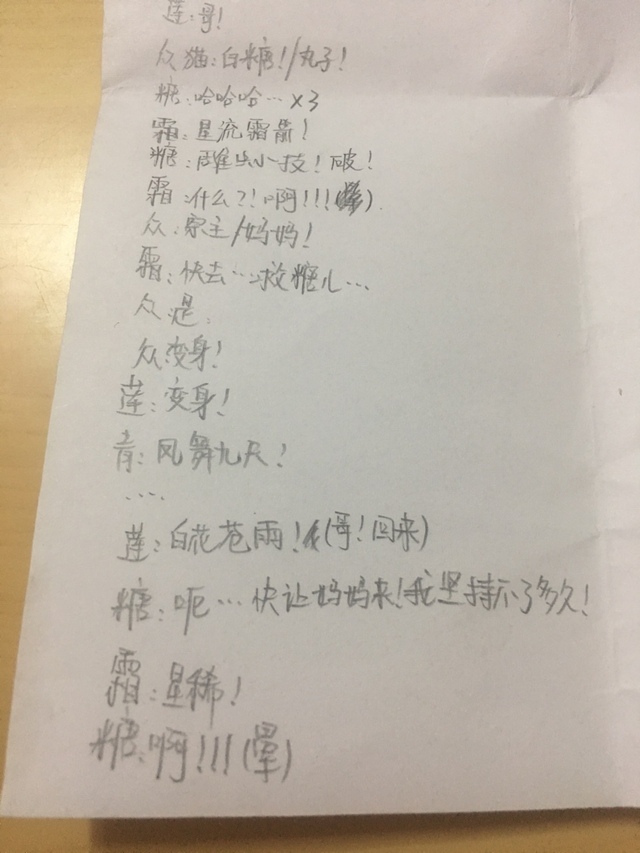 莲:哥!
众猫:白糖!/丸子!
糖:哈哈哈…×3
霜:星流霜箭!
糖:雕虫小技!破!
霜:什么?!啊!!!
众:宗主/妈妈!
霜:快去…救糖儿…
众:是.
众:变身!
莲:变身!
青:风舞九天!
....
莲:白花苍雨!(哥!回来)
糖:呃…快让妈妈来!我坚持不了多久!
霜:星稀!
糖:啊!!!(晕)